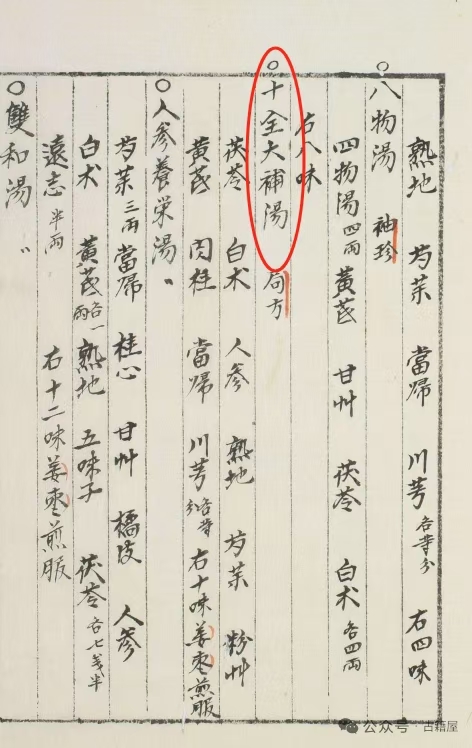 熟地 芍藥 當歸 川芎各等分 右四味
○八物湯 袖珍
四物湯四兩 黃芪 甘艸 茯苓 白朮各四兩
右八味
○十全大補湯 局方
茯苓 白朮 人參 熟地 芍藥 粉艸
黃芪 肉桂 當歸 川芎各等分 右十味姜枣煎服
○人參養栄湯 〃
芍藥三兩 當歸 桂心 甘艸 橘皮 人參
白朮 黃芪各一兩 熟地 五味子 茯苓各七戔半
遠志半兩 右十二味姜枣煎服
○雙和湯 〃
公众号·古籍屋